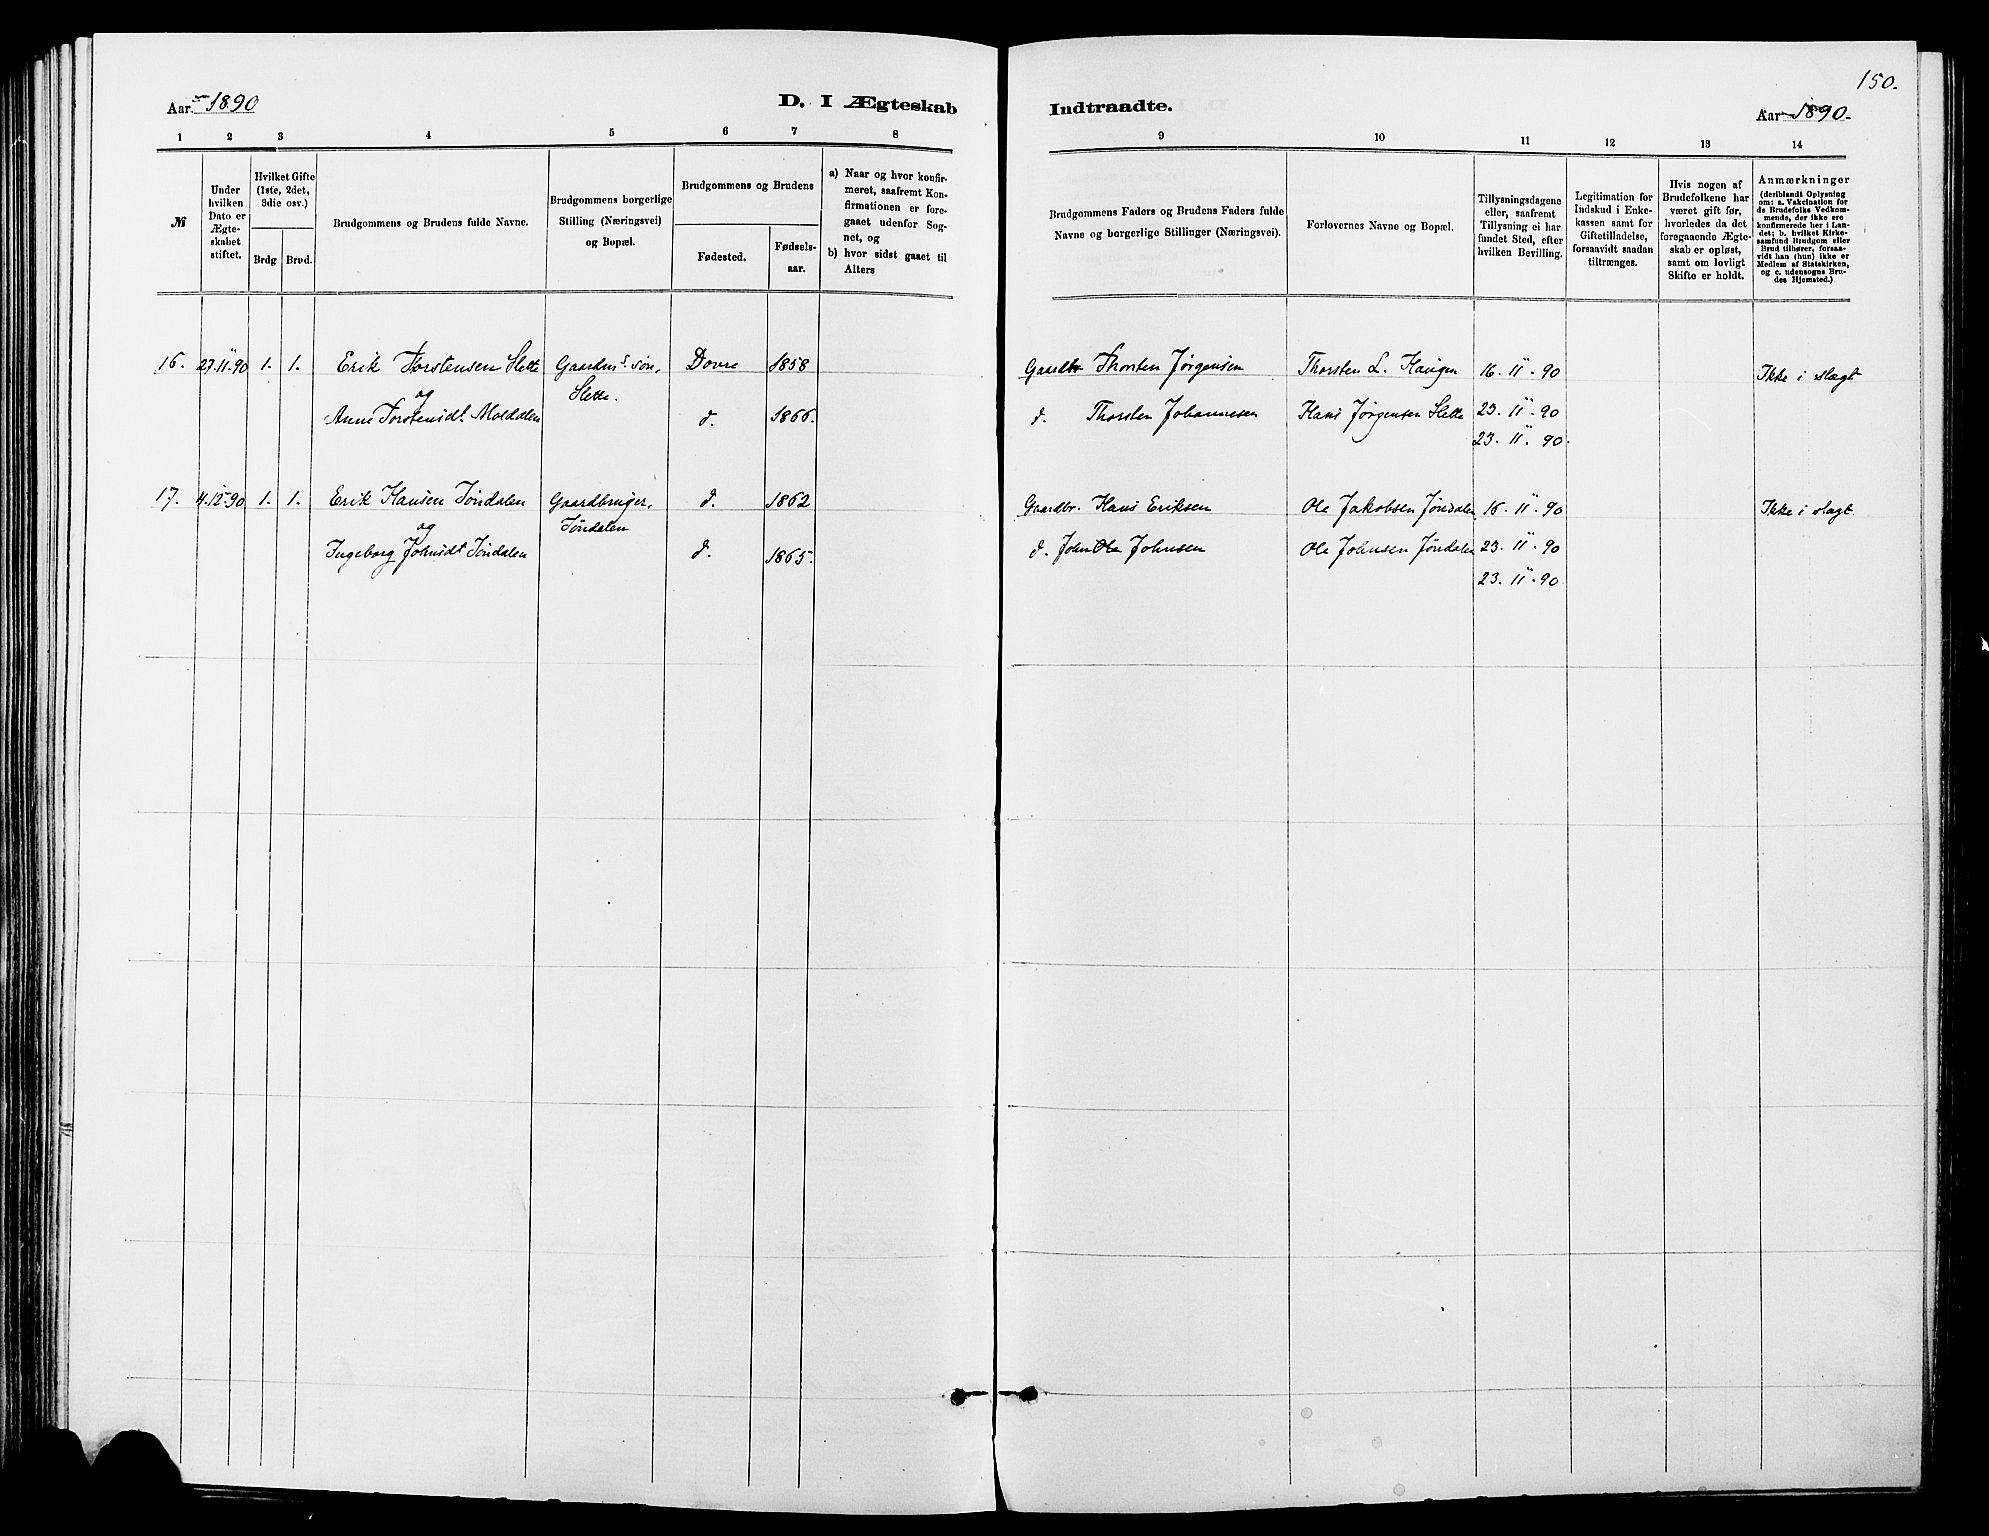 150.
Aar 1890
D. I Ægteskab
Indtraadte.
Aar 1890.
1 2 3 4 5 6 7 8
9 10 11 12 13 14
№
Under
hvilken
Dato er
Ægte-
skabet
stiftet.
Hvilket Gifte
(1ste, 2det,
3die osv.)
Brdg
Brud.
Brudgommens og Brudens fulde Navne.
Brudgommens borgerlige
Stilling (Næringsvei)
og Bopæl.
Brudgommens og Brudens
Fødested.
Fødsels-
aar.
a) Naar og hvor konfir-
meret, saafremt Kon-
firmationen er fore-
gaaet udenfor Sog-
net, og
b) hvor sidst gaaet til
Alters
Brudgommens Faders og Brudens Faders fulde
Navne og borgerlige Stillinger (Næringsvei).
Forlovernes Navne og Bopæl.
Tillysningsdagene
eller, saafremt
Tillysning ei har
fundet Sted, efter
hvilken Bevilling.
Legitimation for
Indskud i Enke-
kassen samt for
Giftetilladelse,
forsaavidt saadan
tiltrænges.
Hvis nogen af
Brudefolkene har
været gift før,
hvorledes da det
foregaaende Ægte-
skab er opløst,
samt om lovligt
Skifte er holdt.
Anmærkninger
(deriblandt Oplysning
om: a. Vakcination for
de Brudefolks Vedkom-
mende, der ikke ere
konfirmerede her i Lan-
det; b. hvilket Kirke-
samfund Brudgom eller
Brud tilhører, forsaa-
vidt han (hun) ikke er
Medlem af Statskirken,
og c. udensogns Bru-
des Hjemsted.)
16. 27.11.90 1. 1. Erik Torstensen Slette Gaardm.s søn, Dovre 1858
og Slette.
Anne Torstensdt. Moldalen d. 1866.
Gaardbr. Thorsten Jørgensen Thorsten L. Haugen 16. 11. 90 Ikke i slægt
d. Thorsten Johannesen Hans Jørgensen Slette 23. 11. 90
23. 11. 90.
17. 4.12.90 1. 1. Erik Hansen Jøndalen Gaardbruger, d. 1862
og Jøndalen
Ingeborg Johnsdt. Jøndalen d. 1865.
Gaardbr. Hans Eriksen Ole Jakobsen Jøndalen 16. 11. 90 Ikke i slægt.
d. John Ole Johnsen Ole Johnsen Jøndalen 23. 11. 90
23. 11. 90